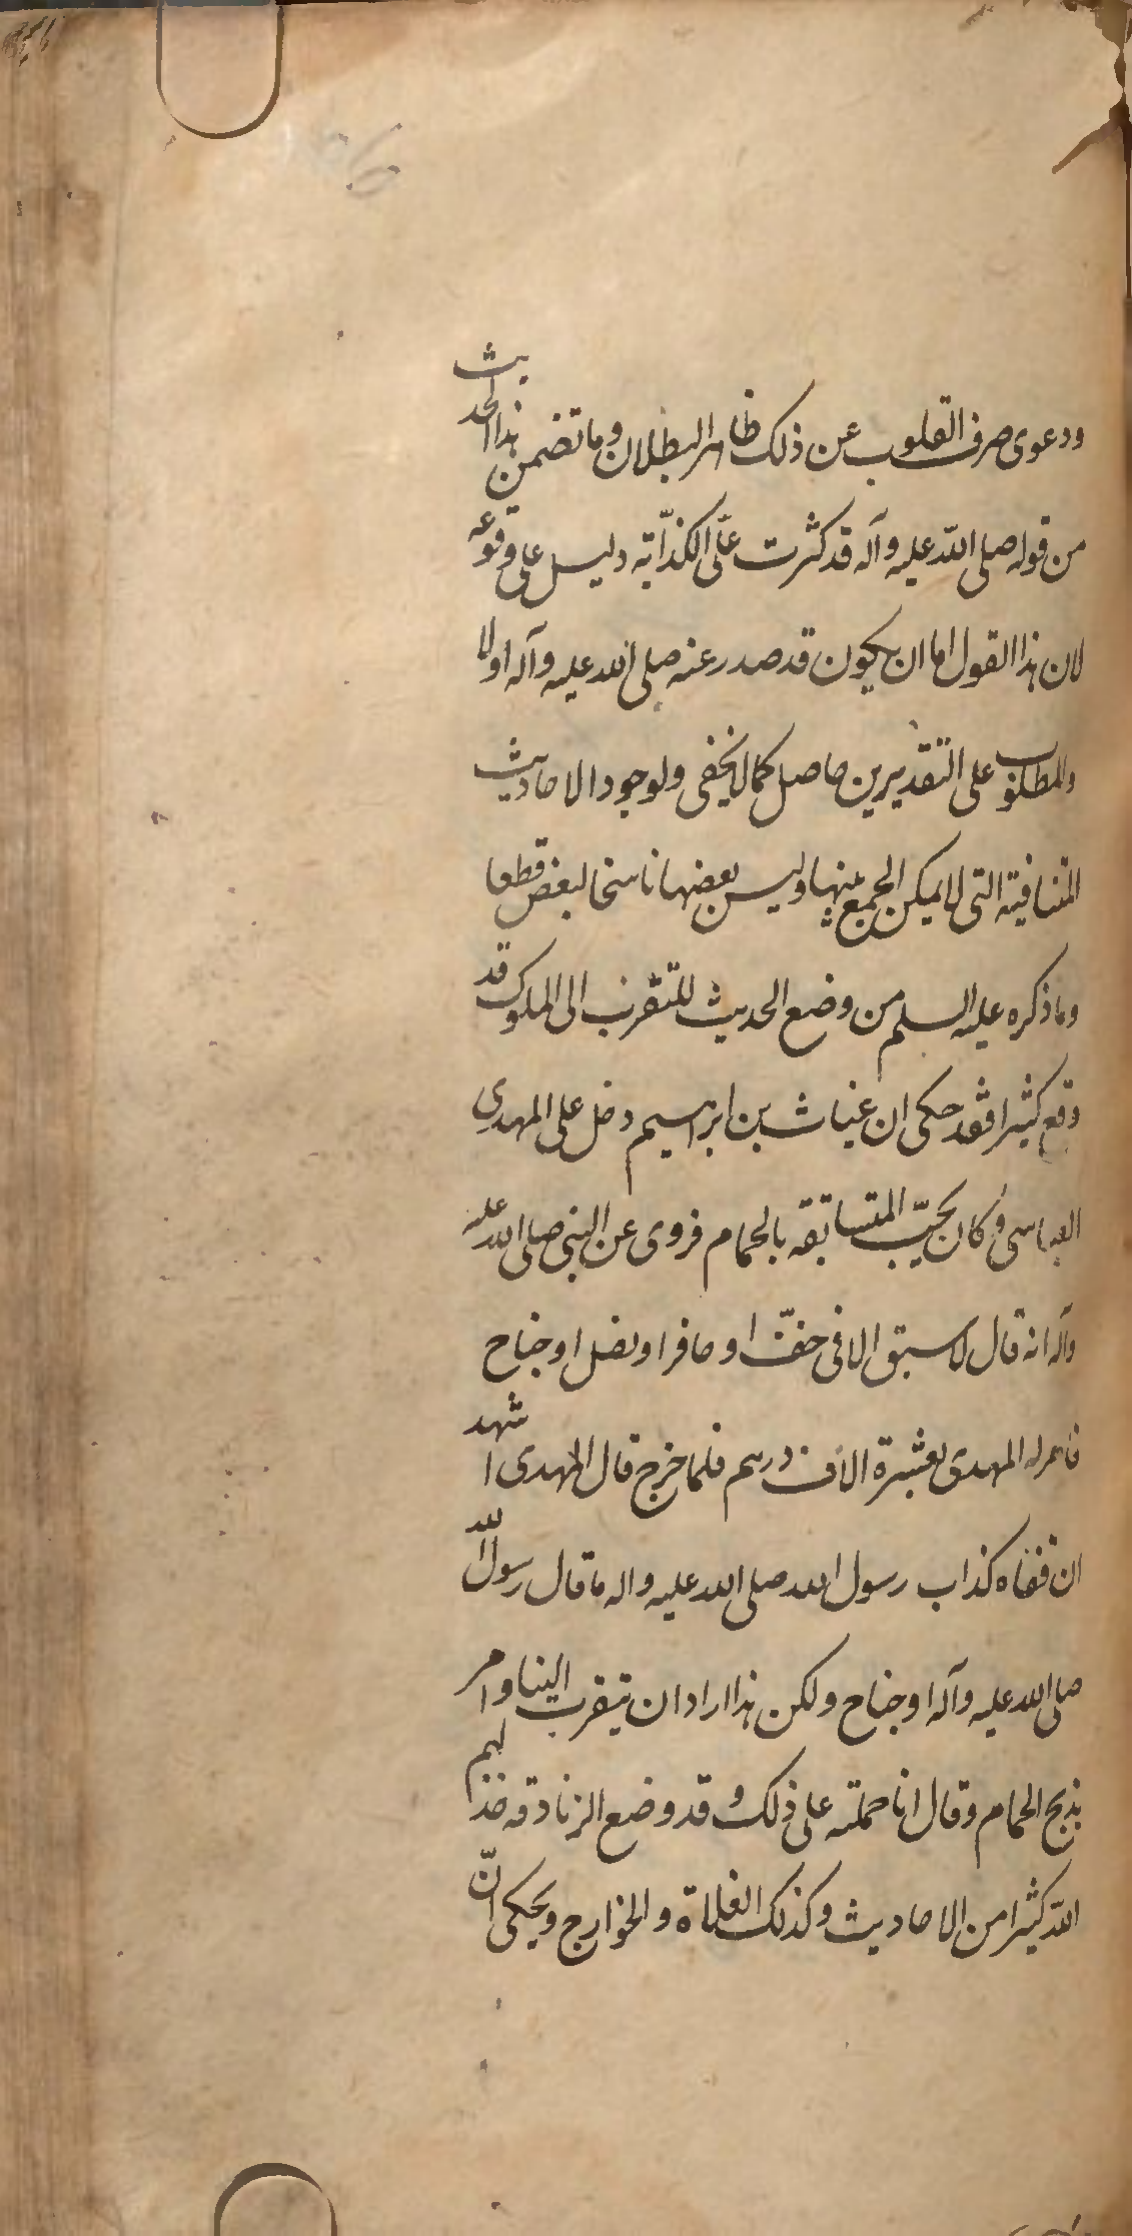 ودعوى صرف القلوب عن ذلك ظاهر البطلان وما تضمن هذا الحديث
من قوله صلى الله عليه وآله قد كثرت علىّ الكذّابة دليل على وقوعه
لان هذا القول اما ان يكون قد صدر عنه صلى الله عليه وآله اولا
والمطلوب على التقديرين حاصل كما لا يخفى ولوجود الاحاديث
المتنافية التى لا يمكن الجمع بينها وليس بعضها ناسخا لبعض قطعا
وما ذكره عليه السلم من وضع الحديث للتقرب الى الملوك قد
وقع كثيرا فقد حكى ان غياث بن ابرهيم دخل على المهدى
العباسى وكان يحبّ المتسابقه بالحمام فروى عن النبى صلى الله عليه
وآله انه قال لا سبق الا فى خفّ او حافر او نصل او جناح
فامر له المهدى بعشرة الاف درهم فلما خرج قال المهدى اشهد
ان قفاه كذاب رسول الله صلى الله عليه واله ما قال رسول الله
صلى الله عليه وآله او جناح ولكن هذا اراد ان يتقرب الينا وامر
بذبح الحمام وقال انا حملته على ذلك وقد وضع الزنادقه خذلهم
الله كثيرا من الاحاديث وكذلك الغلاة والخوارج ويحكى انّ